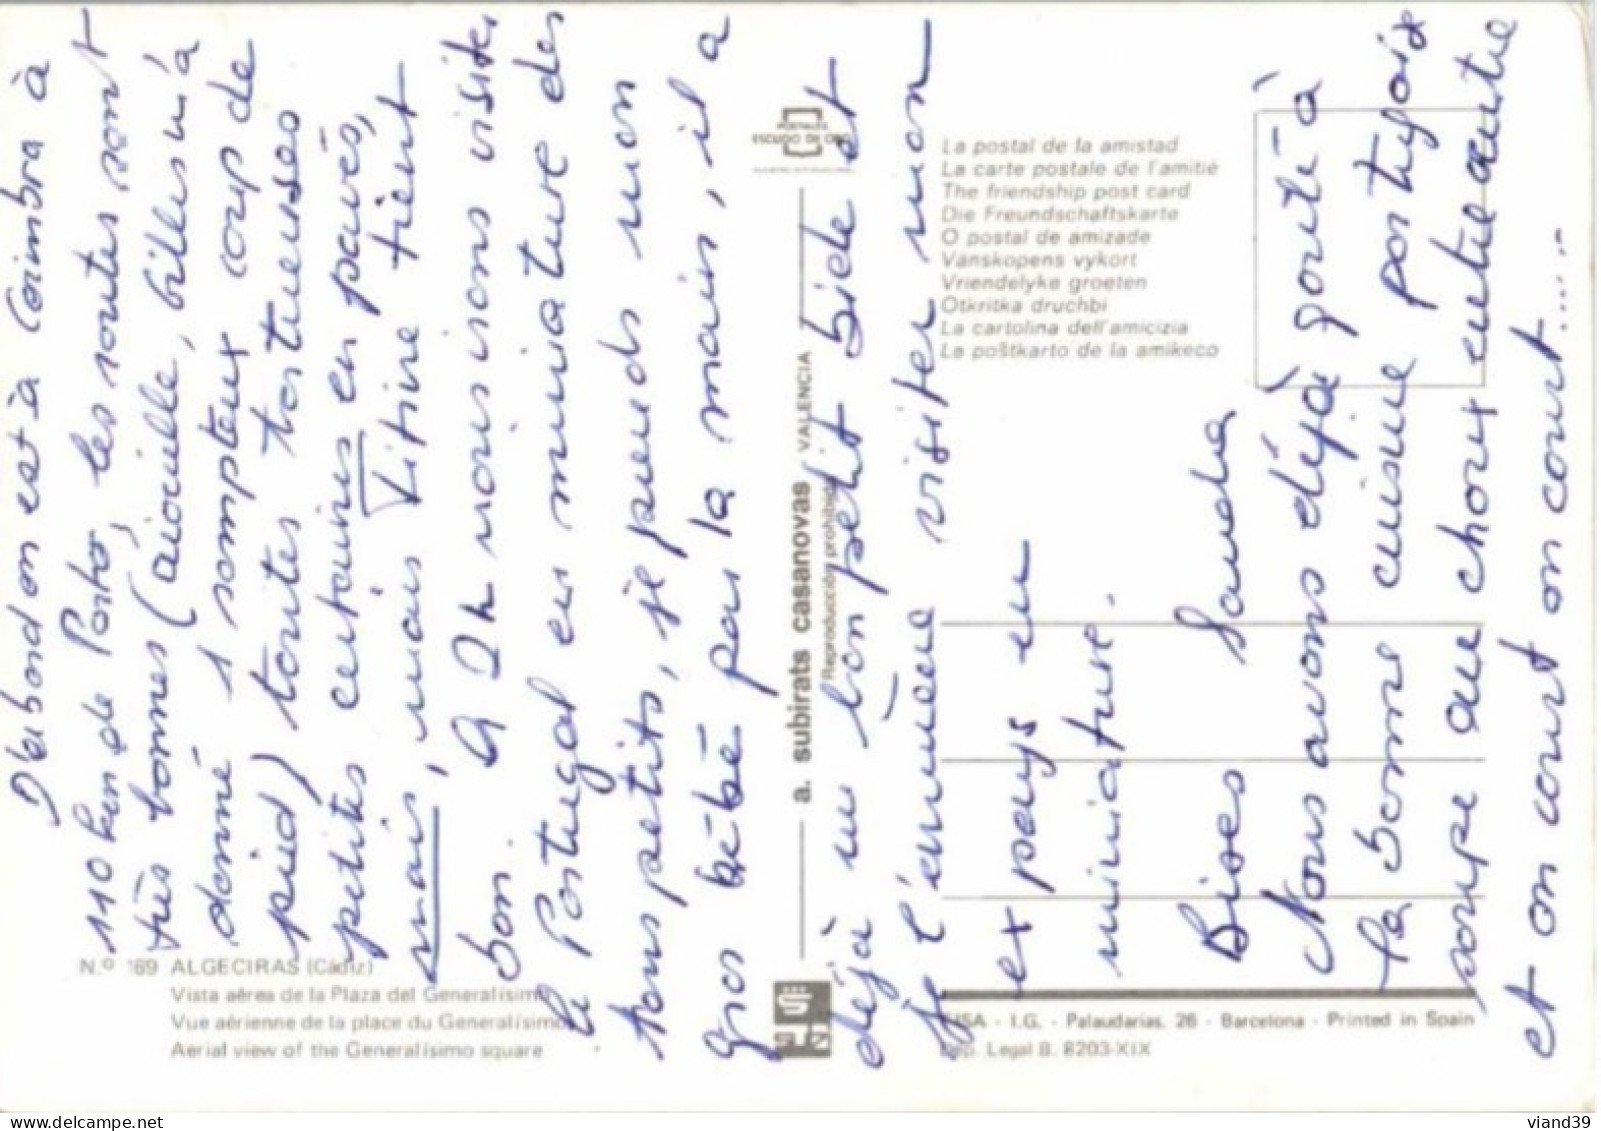 D'abord on est à Coimbra à
110 km de Porto, les routes sont
très bonnes (aïouille, Gilles m'a
donné 1 sompteux coup de
pied) toutes tortueuses
petites certaines en pavés,
mais, mais Titine tient
bon. A 2h nous irons visiter
le Portugal en miniature des
tous petits, je prends mon
gros bébé par la main, il a
déjà un bon petit bide et
je l'emmène visiter mon
ex pays en
miniature.
Bises Sandra
Nous avons déjà goûté à
la bonne cuisine portugaise
soupe au choux entre autre
et on court on court on court.....
N.º 169 ALGECIRAS (Cádiz)
Vista aérea de la Plaza del Generalísimo
Vue aérienne de la place du Generalísimo
Aerial view of the Generalísimo square
POSTALES
ESCUDO DE ORO
a. subirats casanovas VALENCIA
Reproducción prohibida
La postal de la amistad
La carte postale de l'amitié
The friendship post card
Die Freundschaftskarte
O postal de amizade
Vänskapens vykort
Vriendelyke groeten
Otkritka druchbi
La cartolina dell'amicizia
La poŝtkarto de la amikeco
FISA - I.G. - Palaudarias, 26 - Barcelona - Printed in Spain
Dep. Legal B. 8203-XIX
viand39